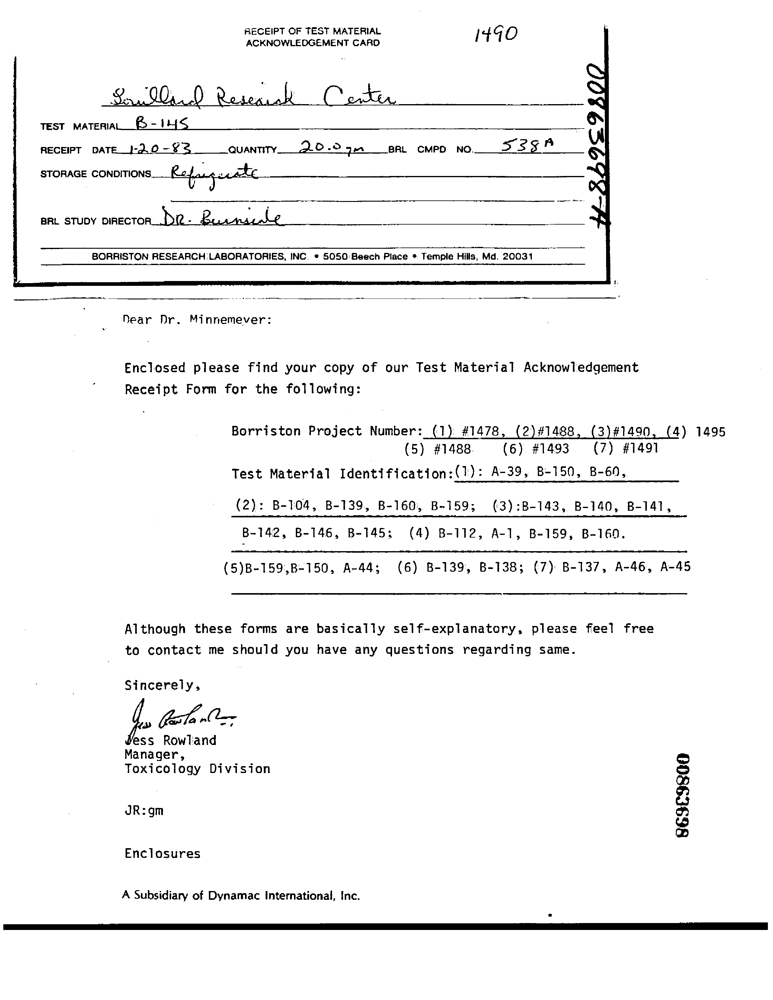 RECEIPT OF TEST MATERIAL
ACKNOWLEDGEMENT CARD
1490
Lorillard Research Center
TEST MATERIAL B-145
RECEIPT DATE 1-20-83 QUANTITY 20.0 gm BRL CMPD NO. 538A
STORAGE CONDITIONS Refrigerate
BRL STUDY DIRECTOR DR. Burnside
BORRISTON RESEARCH LABORATORIES, INC. • 5050 Beech Place • Temple Hills, Md. 20031
00863698-A
Dear Dr. Minnemeyer:
Enclosed please find your copy of our Test Material Acknowledgement
Receipt Form for the following:
Borriston Project Number: (1) #1478, (2)#1488, (3)#1490, (4) 1495
(5) #1488 (6) #1493 (7) #1491
Test Material Identification:(1): A-39, B-150, B-60,
(2): B-104, B-139, B-160, B-159; (3):B-143, B-140, B-141,
B-142, B-146, B-145; (4) B-112, A-1, B-159, B-160.
(5)B-159,B-150, A-44; (6) B-139, B-138; (7) B-137, A-46, A-45
Although these forms are basically self-explanatory, please feel free
to contact me should you have any questions regarding same.
Sincerely,
Jess Rowland
Jess Rowland
Manager,
Toxicology Division
JR:gm
Enclosures
00863698
A Subsidiary of Dynamac International, Inc.